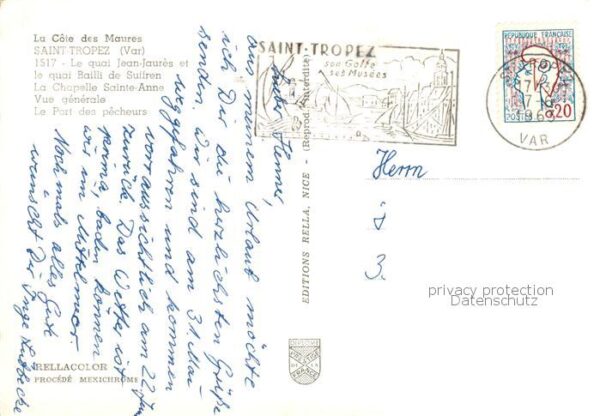 La Côte des Maures
SAINT-TROPEZ (Var)
1517 - Le quai Jean-Jaurès et
le quai Bailli de Suffren
La Chapelle Sainte-Anne
Vue générale
Le Port des pêcheurs
Lieber Henner,
aus meinem Urlaub möchte
ich Dir die herzlichsten Grüße
senden. Wir sind am 31. Mai
weggefahren und kommen
voraussichtlich am 22. Juni
zurück. Das Wetter ist
prima, baden können
wir im Mittelmeer.
Nochmals alles Gute
wünscht Dir Inge
RELLACOLOR
PROCÉDÉ MEXICHROME
EDITIONS RELLA, NICE - (Reprod. interdite)
SAINT-TROPEZ
son Golfe
ses Musées
REPUBLIQUE FRANÇAISE
POSTES
0,20
VAR
Herrn
privacy protection
Datenschutz